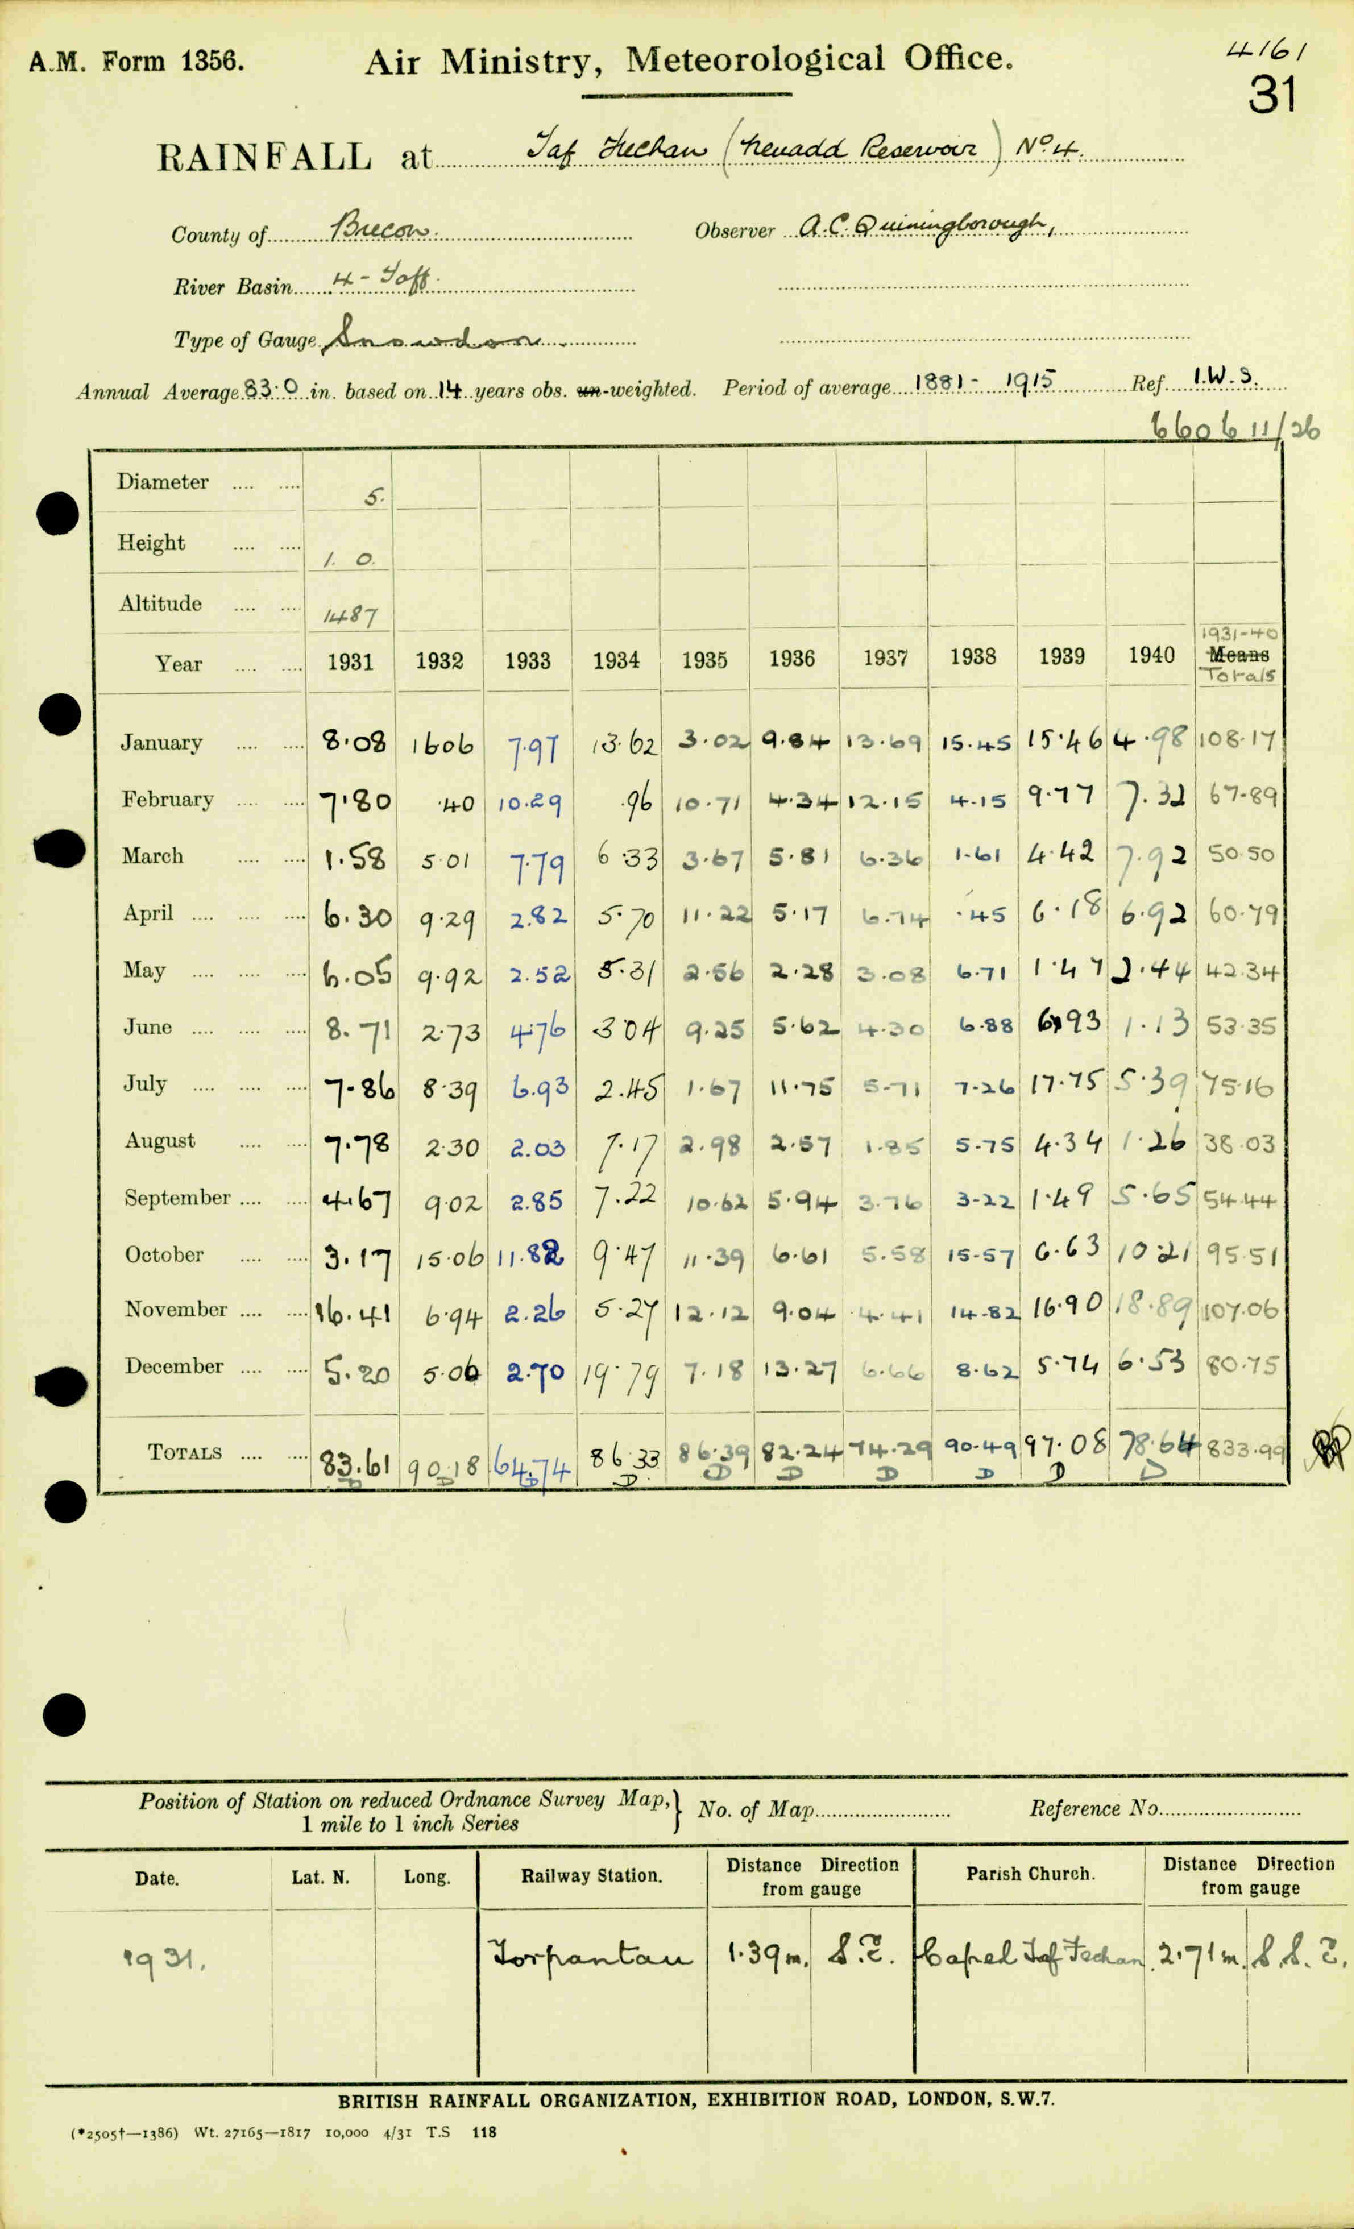 A.M. Form 1356. Air Ministry, Meteorological Office. 4161
31
RAINFALL at Taf Fechan (Neuadd Reservoir) No. 4.
County of Brecon. Observer A.C. Quiningborough,
River Basin 4 - Taff.
Type of Gauge Snowdon
Annual Average 83.0 in. based on 14 years obs. un-weighted. Period of average 1881 - 1915 Ref. I.W.S.
6606 11/26
Diameter .... .... 5.
Height .... .... 1. 0.
Altitude .... .... 1487
1931-40
Year .... .... 1931 1932 1933 1934 1935 1936 1937 1938 1939 1940 Means
Totals
January .... .... 8.08 1606 7.97 13.62 3.02 9.84 13.69 15.45 15.46 4.98 108.17
February .... .... 7.80 .40 10.29 .96 10.71 4.34 12.15 4.15 9.77 7.32 67.89
March .... .... 1.58 5.01 7.79 6.33 3.67 5.81 6.36 1.61 4.42 7.92 50.50
April .... .... .... 6.30 9.29 2.82 5.70 11.22 5.17 6.74 .45 6.18 6.92 60.79
May .... .... .... 6.05 9.92 2.52 5.31 2.56 2.28 3.08 6.71 1.47 2.44 42.34
June .... .... .... 8.71 2.73 4.76 3.04 9.25 5.62 4.30 6.88 6.93 1.13 53.35
July .... .... .... 7.86 8.39 6.93 2.45 1.67 11.75 5.71 7.26 17.75 5.39 75.16
August .... .... 7.78 2.30 2.03 7.17 2.98 2.57 1.85 5.75 4.34 1.26 38.03
September .... .... 4.67 9.02 2.85 7.22 10.62 5.94 3.76 3.22 1.49 5.65 54.44
October .... .... 3.17 15.06 11.82 9.47 11.39 6.61 5.58 15.57 6.63 10.21 95.51
November .... .... 16.41 6.94 2.26 5.27 12.12 9.04 4.41 14.82 16.90 18.89 107.06
December .... .... 5.20 5.06 2.70 19.79 7.18 13.27 6.66 8.62 5.74 6.53 80.75
TOTALS .... .... 83.61 90.18 64.74 86.33 86.39 82.24 74.29 90.49 97.08 78.64 833.99
D D D D D D D D D D
Position of Station on reduced Ordnance Survey Map,} No. of Map Reference No.
1 mile to 1 inch Series
Date. Lat. N. Long. Railway Station. Distance Direction from gauge Parish Church. Distance Direction from gauge
1931. Torpantau 1.39m. S.E. Capel Taf Fechan 2.71m. S.S.E.
BRITISH RAINFALL ORGANIZATION, EXHIBITION ROAD, LONDON, S.W.7.
(*2505†—1386) Wt. 27165—1817 10,000 4/31 T.S 118